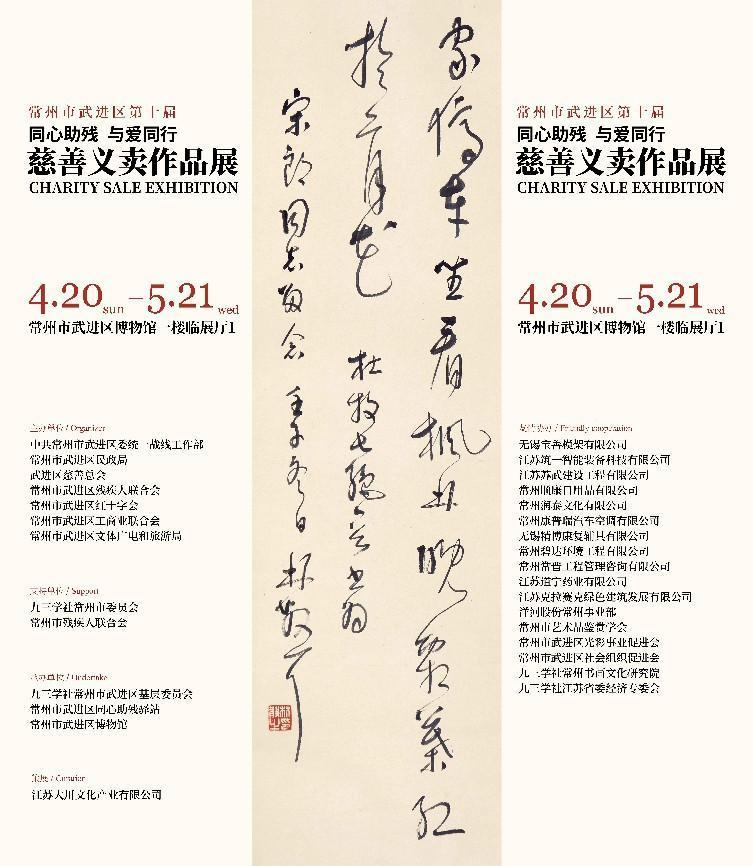 常州市武进区第十届
同心助残 与爱同行
慈善义卖作品展
CHARITY SALE EXHIBITION
4.20sun-5.21wed
常州市武进区博物馆一楼临展厅1
主办单位 / Organizer
中共常州市武进区委统一战线工作部
常州市武进区民政局
武进区慈善总会
常州市武进区残疾人联合会
常州市武进区红十字会
常州市武进区工商业联合会
常州市武进区文体广电和旅游局
支持单位 / Support
九三学社常州市委员会
常州市残疾人联合会
承办单位 / Undertake
九三学社常州市武进区基层委员会
常州市武进区同心助残驿站
常州市武进区博物馆
策展 / Curation
江苏大川文化产业有限公司
家停车坐看枫林晚霜叶红
于二月花
杜牧七绝一首书为
宋郎同志留念 壬子冬日 林散之
常州市武进区第十届
同心助残 与爱同行
慈善义卖作品展
CHARITY SALE EXHIBITION
4.20sun-5.21wed
常州市武进区博物馆一楼临展厅1
友情协办 / Friendly cooperation
无锡宝善模架有限公司
江苏筑一智能装备科技有限公司
江苏苏武建设工程有限公司
常州顺康日用品有限公司
常州润泰文化有限公司
常州康普瑞汽车空调有限公司
无锡精博康复辅具有限公司
常州碧达环境工程有限公司
常州常晋工程管理咨询有限公司
江苏道宁药业有限公司
江苏克拉赛克绿色建筑发展有限公司
洋河股份常州事业部
常州市艺术品鉴赏学会
常州市武进区光彩事业促进会
常州市武进区社会组织促进会
九三学社常州书画文化研究院
九三学社江苏省委经济专委会